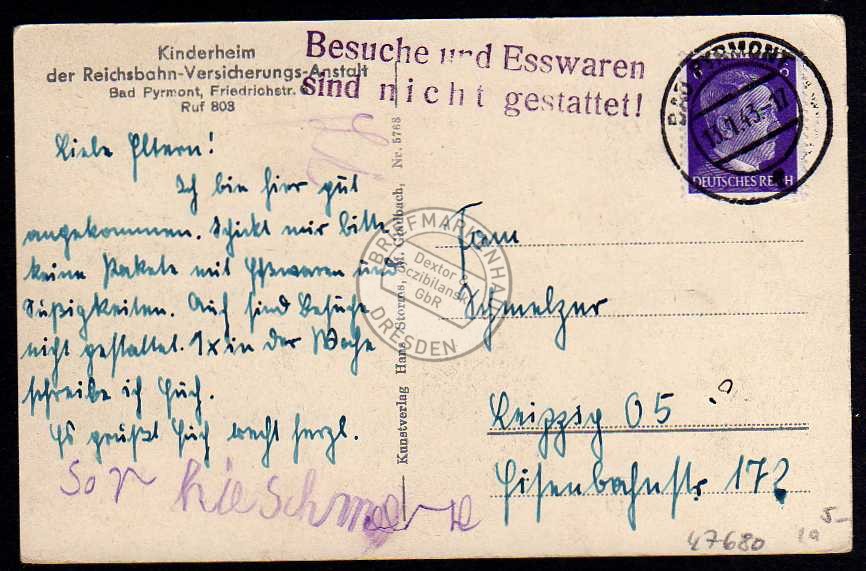 Kinderheim
der Reichsbahn-Versicherungs-Anstalt
Bad Pyrmont, Friedrichstr.
Ruf 808
Besuche und Esswaren
sind nicht gestattet!
BAD PYRMONT
DEUTSCHES REICH
Liebe Eltern!
Ich bin hier gut
angekommen. Schickt mir bitte
keine Pakete mit Eßwaren und
Süßigkeiten. Auch sind Besuche
nicht gestattet. 1x in der Woche
schreibe ich Euch.
Es grüßt Euch recht herzl.
Kunstverlag Hans Storms, M. Gladbach, Nr. 5768
Fam
Schmelzer
Leipzig O5
Eisenbahnstr. 172
BRIEFMARKENHAUS
Dexter &
Sczibilanski
GbR
DRESDEN
47680
5-